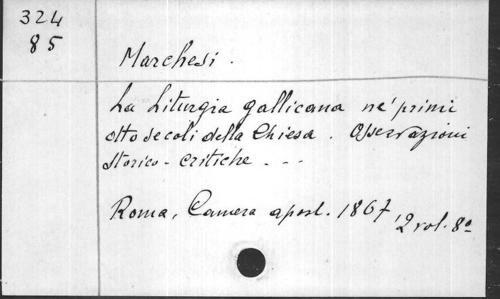 324
85
Marchesi.
La Liturgia gallicana ne' primi
otto secoli della Chiesa. Osservazioni
storico-critiche - - -
Roma, Camera apost. 1867, 2 vol. 8º